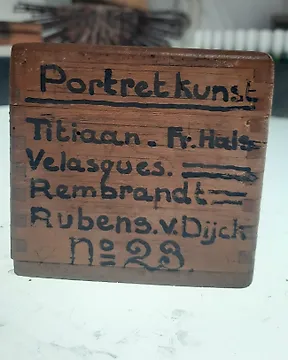 Portretkunst
Titiaan. Fr. Hals
Velasques.
Rembrandt
Rubens. v. Dijck
No 23.